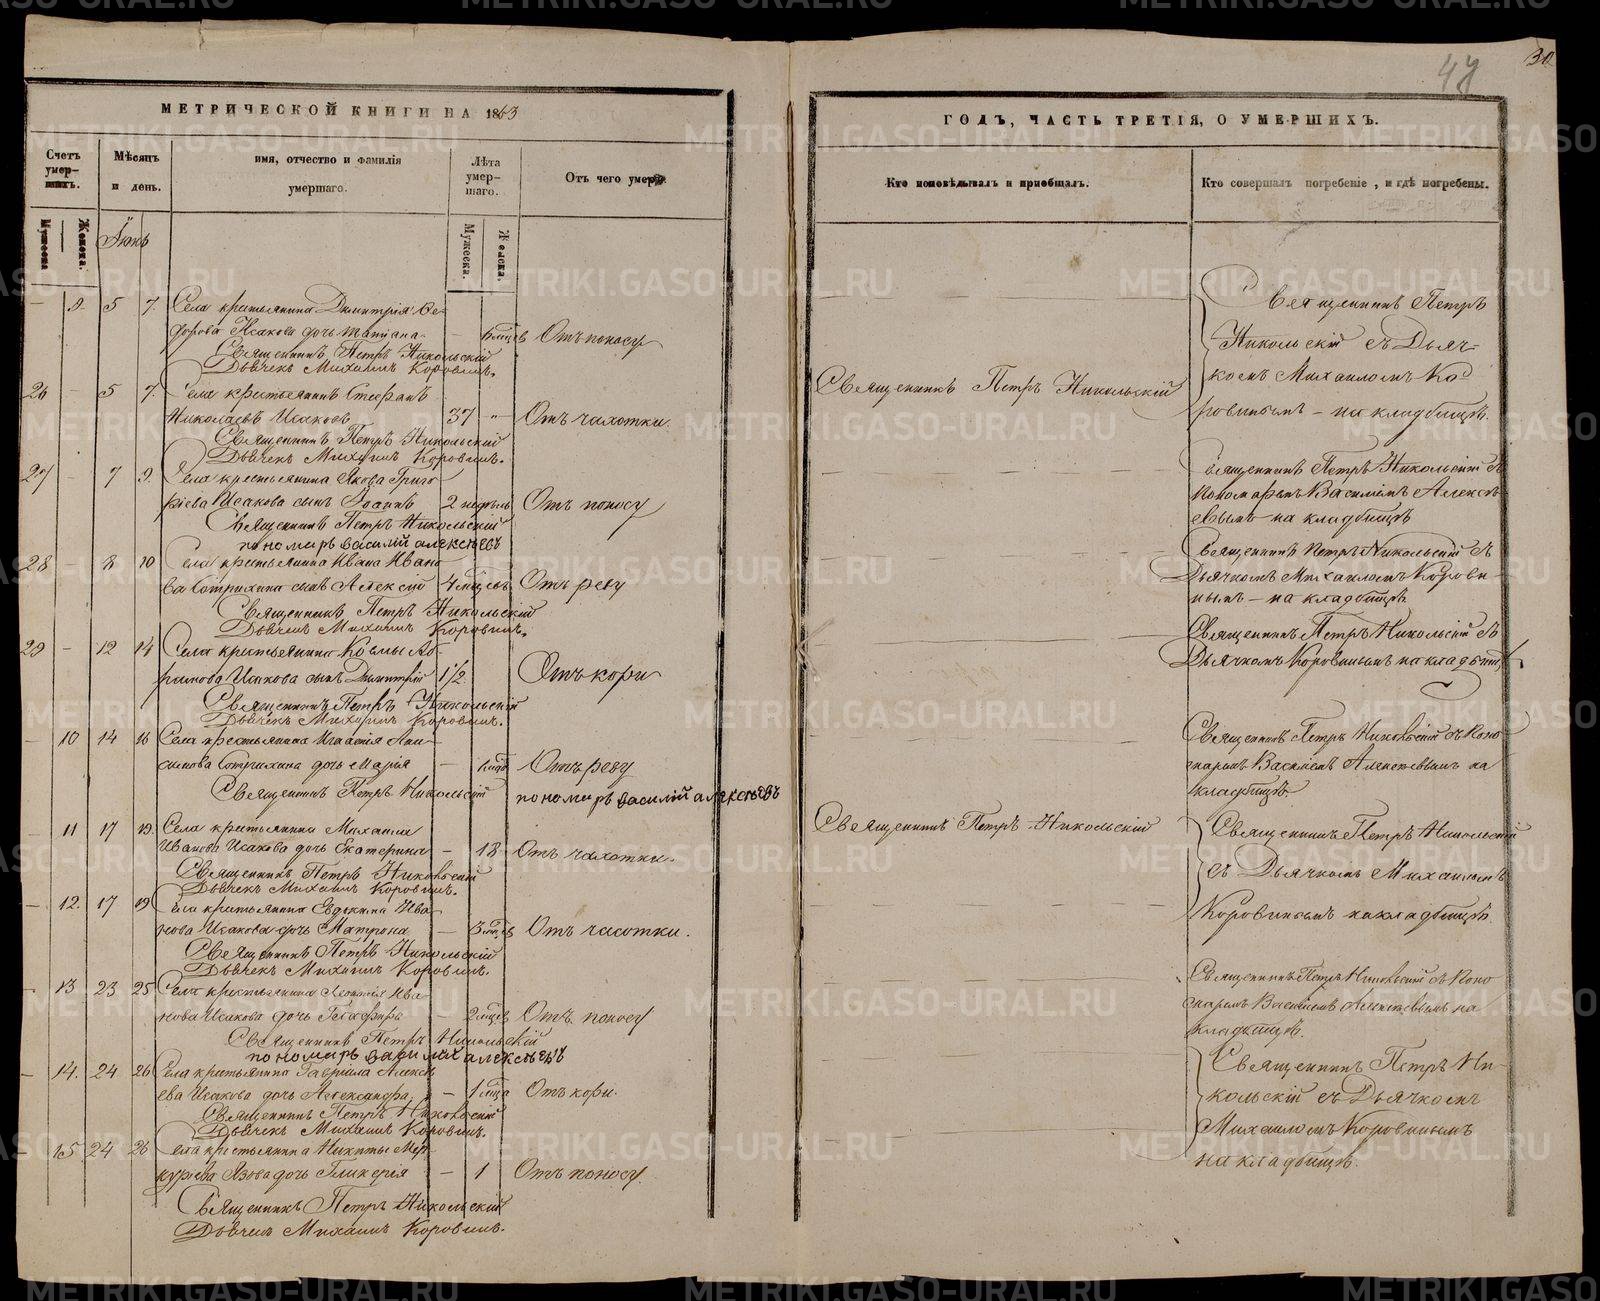 30
47
МЕТРИЧЕСКОЙ КНИГИ НА 1863
ГОДЪ, ЧАСТЬ ТРЕТІЯ, О УМЕРШИХЪ.
Счетъ умер-шихъ.
Мѣсяцъ и день.
имя, отчество и фамилія умершаго.
Лѣта умер-шаго.
Отъ чего умеръ
Кто исповѣдывалъ и пріобщалъ.
Кто совершалъ погребеніе, и гдѣ погребены.
Мужеска
Женска.
Мужеска.
Женска.
Іюнь
9. 5 7. Села крестьянина Димитрія Ѳе-
дорова Исакова дочь Татіана. Отъ поносу
Священникъ Петръ Никольскій
Дьячекъ Михаилъ Коровинъ.
26 5 7. Села крестьянинъ Стефанъ
Николаевъ Исаковъ 37 Отъ чахотки.
Священникъ Петръ Никольскій
Дьячекъ Михаилъ Коровинъ.
27 7 9. Села крестьянина Якова Григо
ріева Исакова сынъ Іоаннъ 2 недѣль Отъ поносу
Священникъ Петръ Никольскій
пономарь василій алексѣевъ
28 8 10 Села крестьянина Ивана Ивано
ва сынъ Алексій 4 мцевъ Отъ реву
Священникъ Петръ Никольскій
Дьячекъ Михаилъ Коровинъ.
29 12 14 Села крестьянина Козмы
Исакова сынъ Димитрій 1 1/2 Отъ кори
Священникъ Петръ Никольскій
Дьячекъ Михаилъ Коровинъ.
10 14 16 Села крестьянина Игнатія
дочь Марія Отъ реву
Священникъ Петръ Никольскій пономарь василій алексѣевъ
11 17 19. Села крестьянина Михаила
Иванова Исакова дочь Екатерина 18 Отъ чахотки.
Священникъ Петръ Никольскій
Дьячекъ Михаилъ Коровинъ.
12. 17 19 Села крестьянина Евдокима Ива
нова Исакова дочь Матрона 3 мцевъ Отъ чахотки.
Священникъ Петръ Никольскій
Дьячекъ Михаилъ Коровинъ.
13 23 25 Села крестьянина Леонтія Ива
нова Исакова дочь 2 мцевъ Отъ поносу
Священникъ Петръ Никольскій
пономарь василій алексѣевъ
14. 24 26 Села крестьянина Гавріила Алексѣ
ева Исакова дочь Александра 1 мца Отъ кори.
Священникъ Петръ Никольскій
Дьячекъ Михаилъ Коровинъ.
15. 24 26 Села крестьянина Никиты Мер-
курьева дочь Гликерія 1 Отъ поносу.
Священникъ Петръ Никольскій
Дьячекъ Михаилъ Коровинъ.
Священникъ Петръ Никольскій
Священникъ Петръ Никольскій
Священникъ Петръ
Никольскій съ Дьяч-
комъ Михаиломъ Ко-
ровинымъ - на кладбищѣ.
Священникъ Петръ Никольскій съ
пономаремъ Василіемъ Алексѣ
евымъ на кладбищѣ
Священникъ Петръ Никольскій съ
Дьячкомъ Михаиломъ Корови-
нымъ - на кладбищѣ.
Священникъ Петръ Никольскій съ
Дьячкомъ Коровинымъ на кладбищѣ
Священникъ Петръ Никольскій съ поно
маремъ Василіемъ Алексѣевымъ на
кладбищѣ.
Священникъ Петръ Никольскій
съ Дьячкомъ Михаиломъ
Коровинымъ на кладбищѣ.
Священникъ Петръ Никольскій съ поно
маремъ Василіемъ Алексѣевымъ на
кладбищѣ.
Священникъ Петръ Ни-
кольскій съ Дьячкомъ
Михаиломъ Коровинымъ
на кладбищѣ.
METRIKI.GASO-URAL.RU